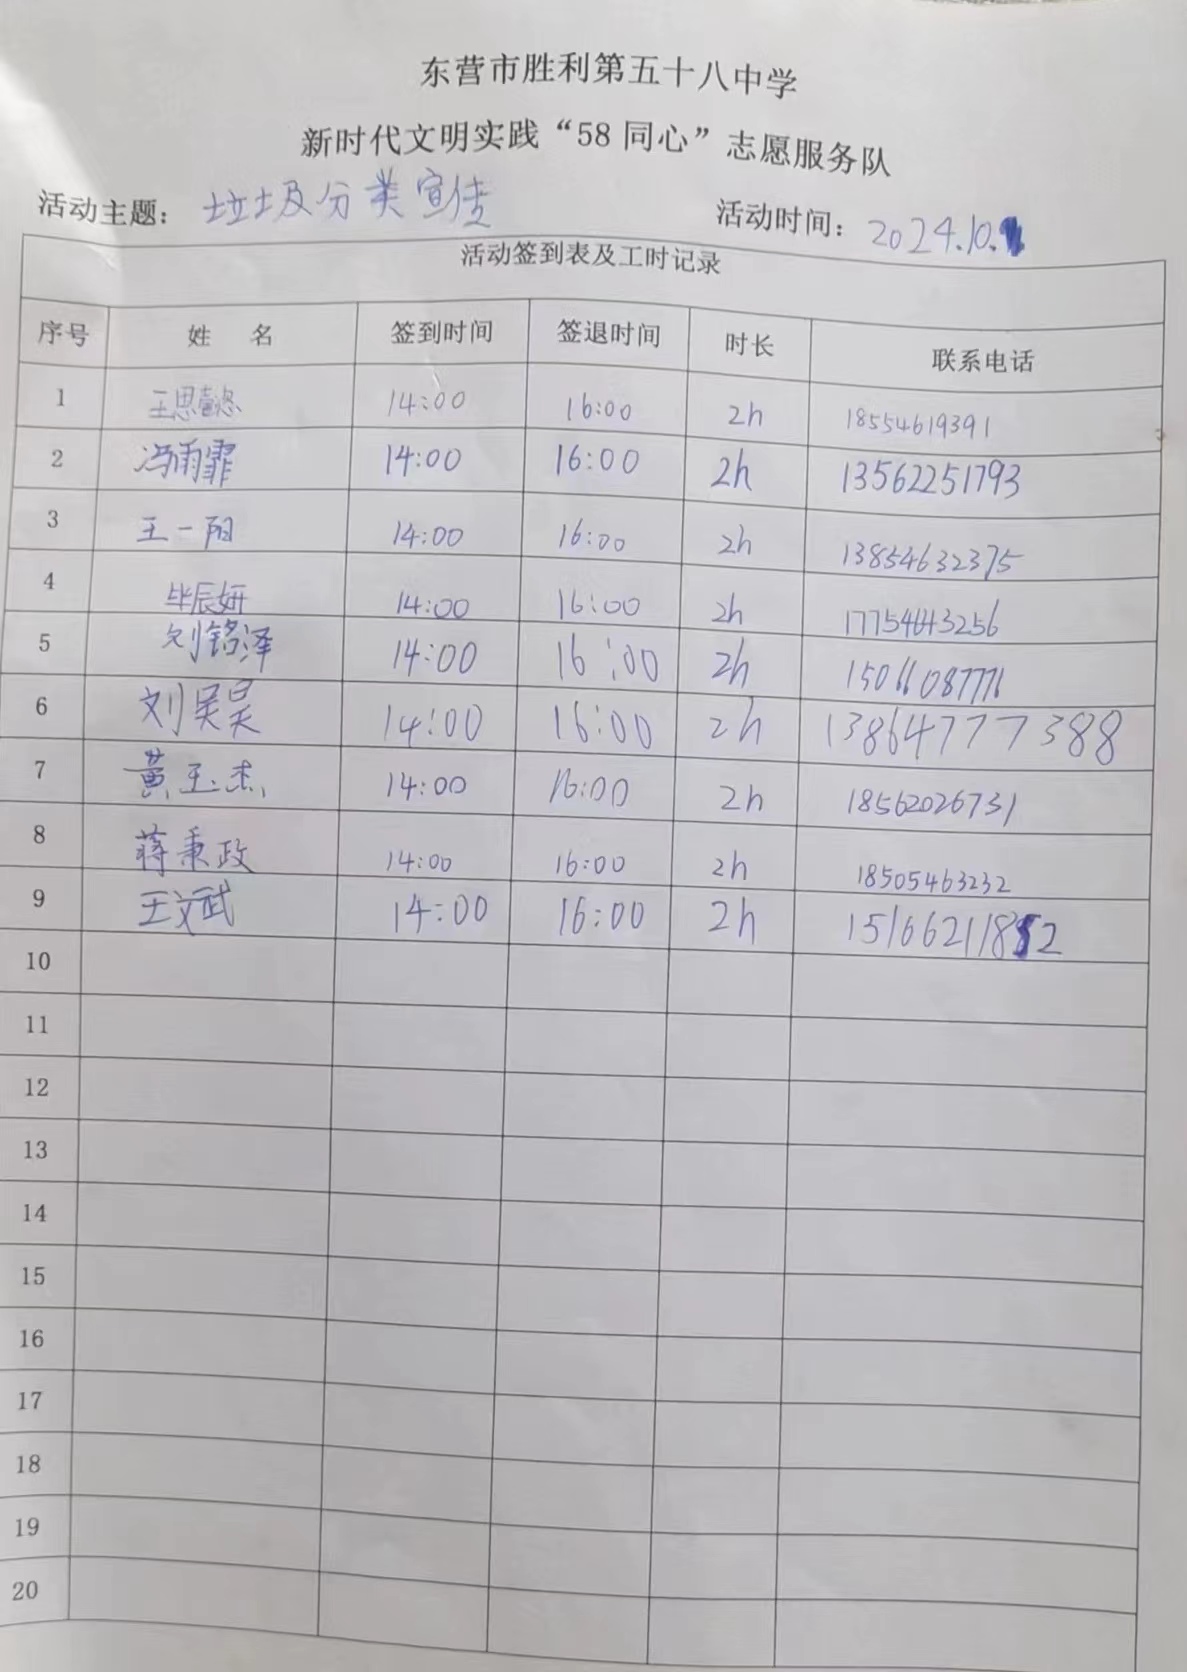 东营市胜利第五十八中学
新时代文明实践“58 同心”志愿服务队
活动主题：垃圾分类宣传 活动时间：2024.10.
活动签到表及工时记录
序号 姓 名 签到时间 签退时间 时长 联系电话
1 王思懿 14:00 16:00 2h 18554619391
2 冯雨霏 14:00 16:00 2h 13562251793
3 王一阳 14:00 16:00 2h 13854632375
4 毕辰妍 14:00 16:00 2h
5 刘铭泽 14:00 16:00 2h
6 刘昊昊 14:00 16:00 2h 13864777388
7 黄玉杰 14:00 16:00 2h 18562026731
8 蒋秉政 14:00 16:00 2h 18505463232
9 王文武 14:00 16:00 2h
10
11
12
13
14
15
16
17
18
19
20